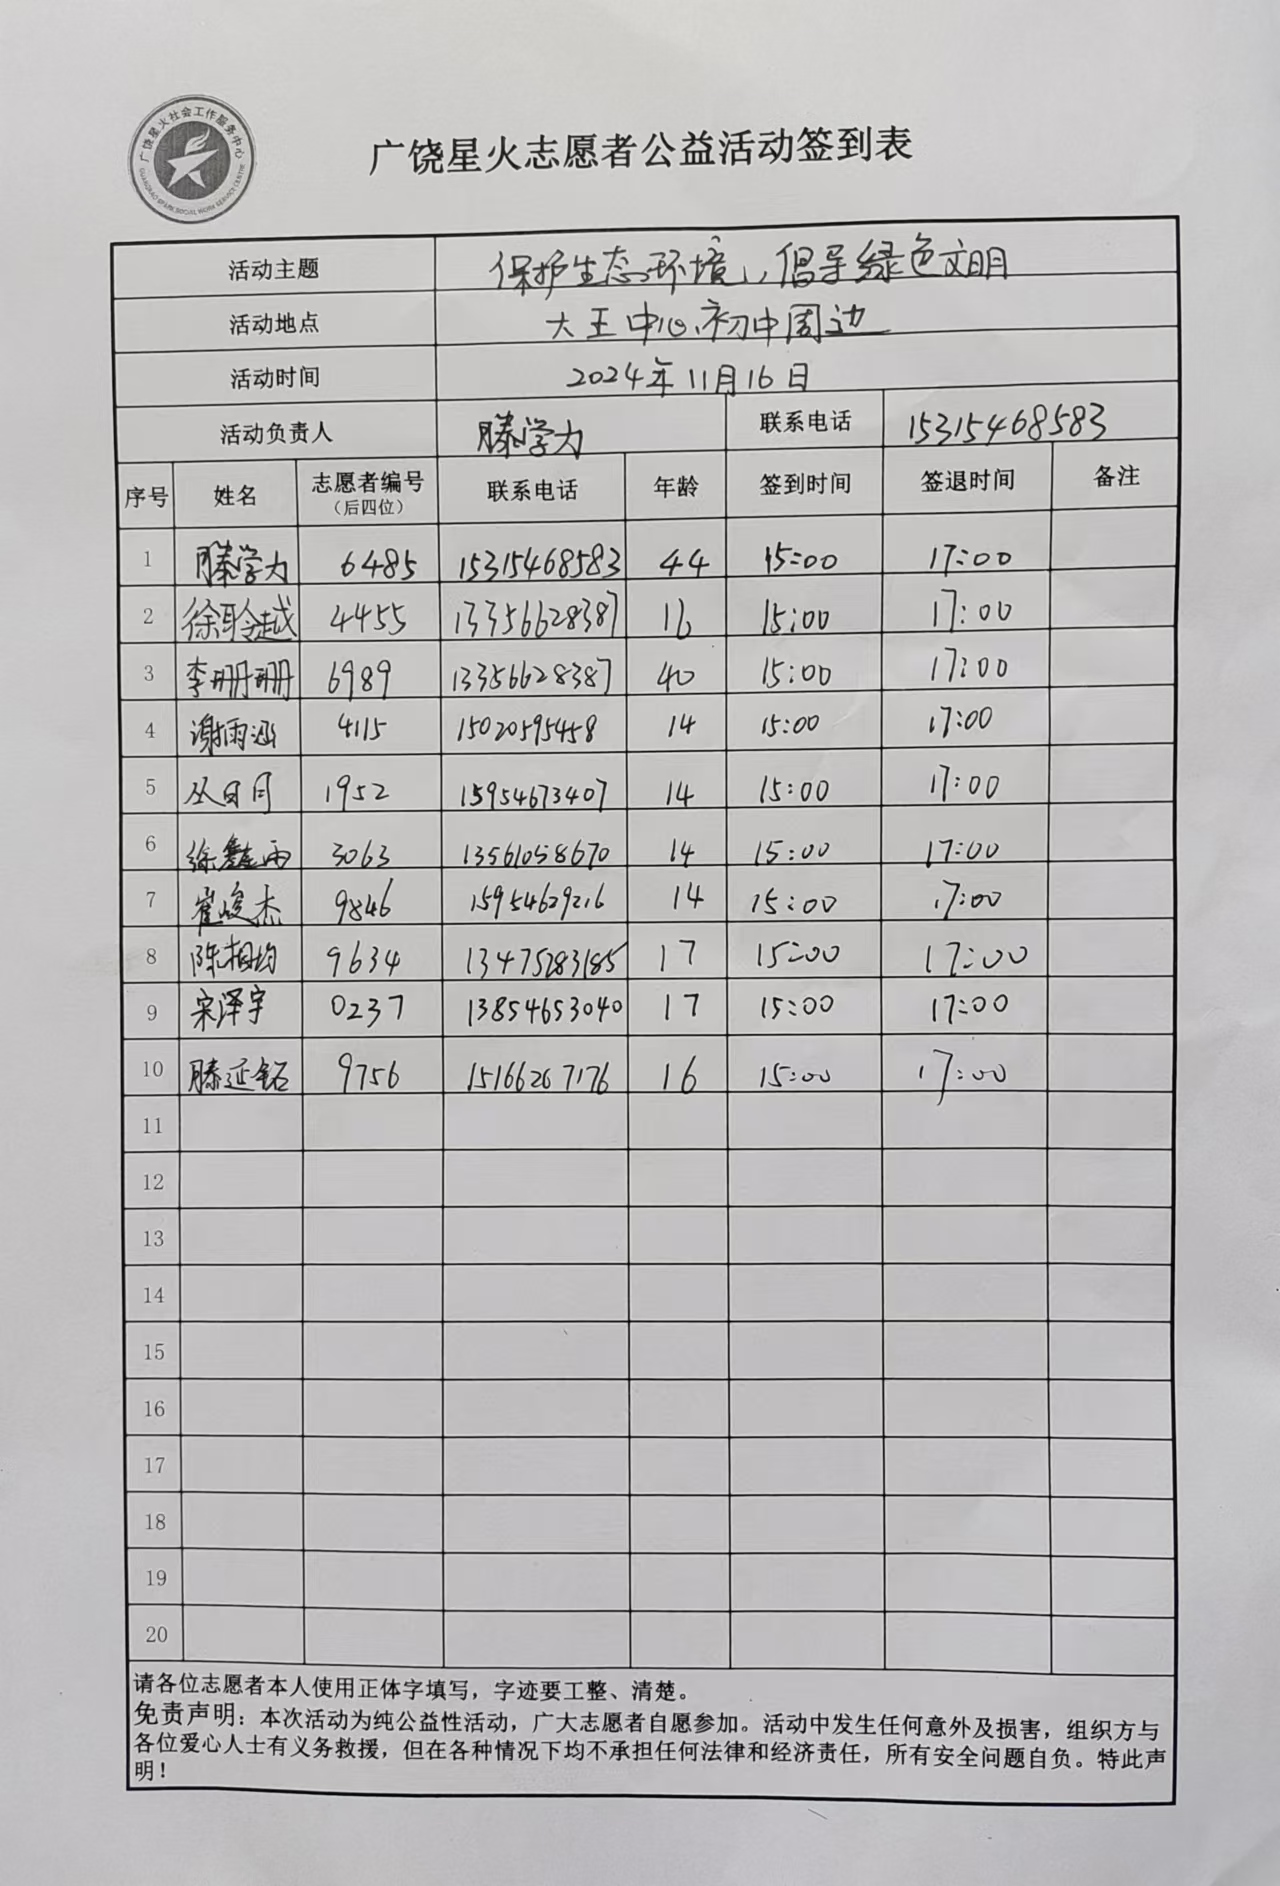 广饶星火社会工作服务中心
GUANGRAO SPARK SOCIAL WORK SERVICE CENTRE
广饶星火志愿者公益活动签到表
活动主题 保护生态环境，倡导绿色文明
活动地点 大王中心初中周边
活动时间 2024年11月16日
活动负责人 滕学力 联系电话 15315468583
序号 姓名 志愿者编号（后四位） 联系电话 年龄 签到时间 签退时间 备注
1 滕学力 6485 15315468583 44 15:00 17:00
2 徐聆越 4455 13356628387 16 15:00 17:00
3 李珊珊 6989 13356628387 40 15:00 17:00
4 谢雨涵 4115 15020595458 14 15:00 17:00
5 丛日月 1952 15954673407 14 15:00 17:00
6 徐鑫雨 3063 13561058670 14 15:00 17:00
7 崔峻杰 9846 15954629216 14 15:00 17:00
8 陈相均 9634 13475283185 17 15:00 17:00
9 宋泽宇 0237 13854653040 17 15:00 17:00
10 滕延铭 9756 15166267176 16 15:00 17:00
11
12
13
14
15
16
17
18
19
20
请各位志愿者本人使用正体字填写，字迹要工整、清楚。
免责声明：本次活动为纯公益性活动，广大志愿者自愿参加。活动中发生任何意外及损害，组织方与
各位爱心人士有义务救援，但在各种情况下均不承担任何法律和经济责任，所有安全问题自负。特此声
明！